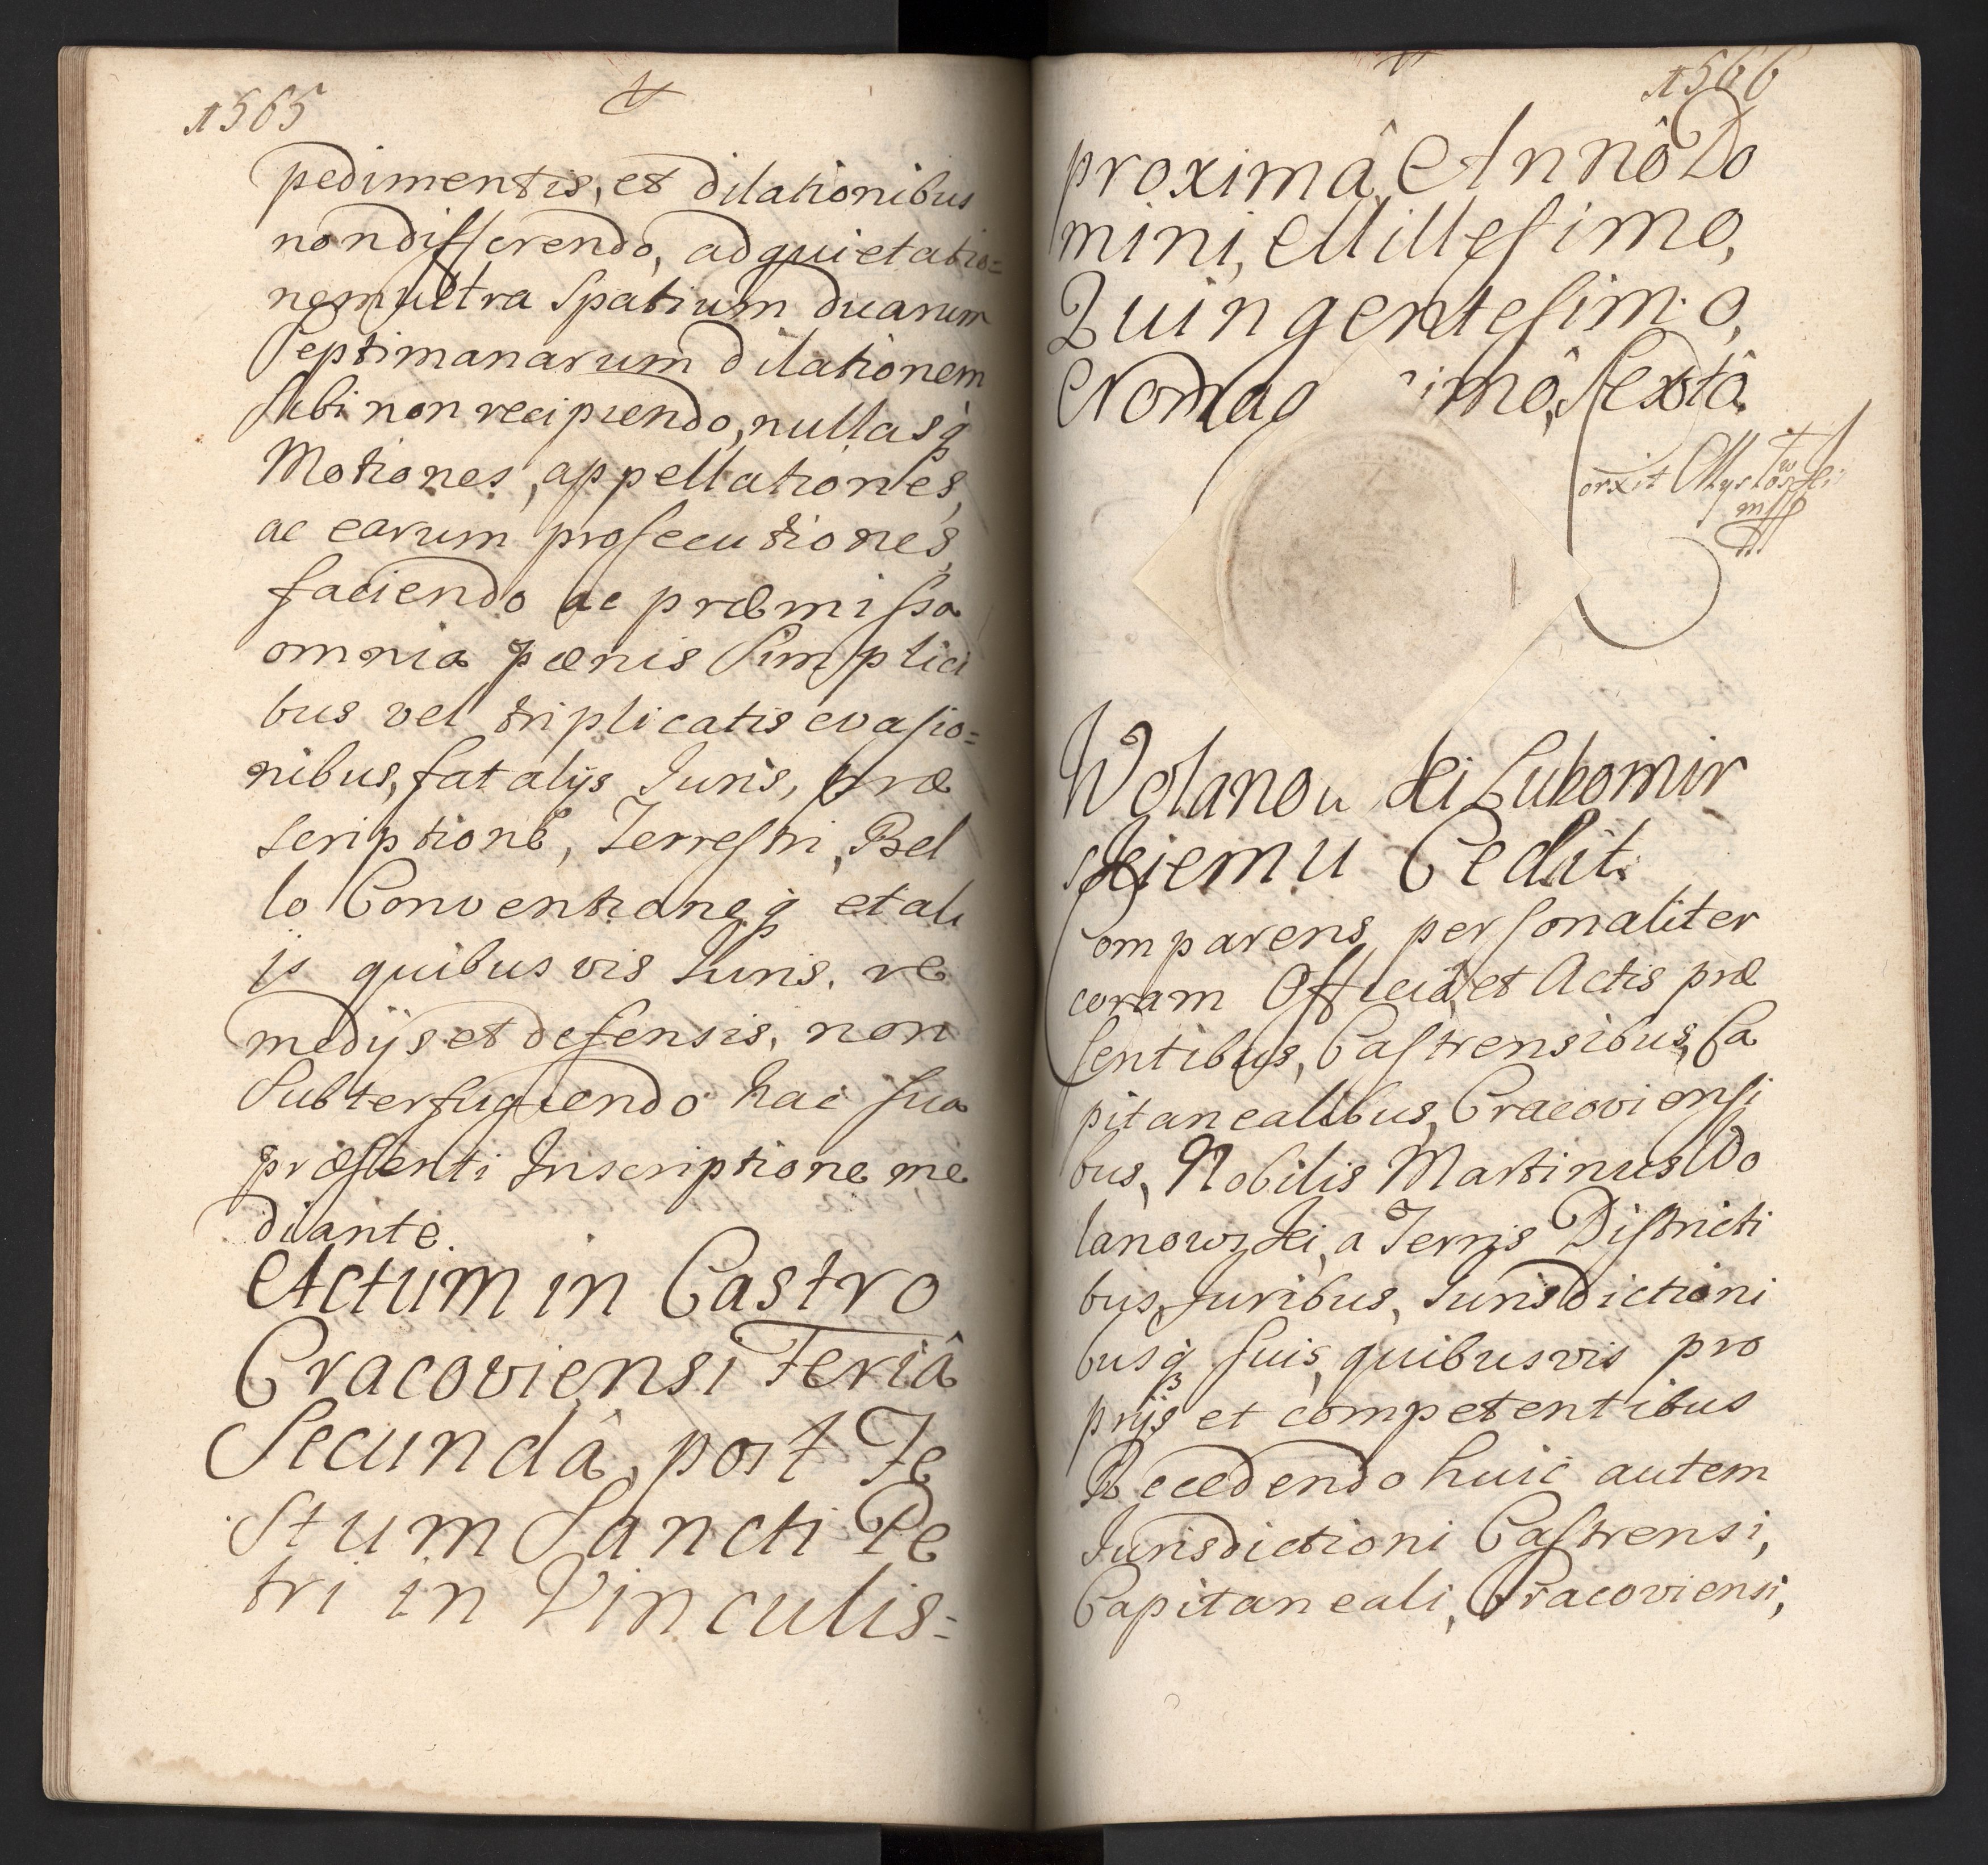 1565
pedimentis, et dilationibus
non differendo, ad quietatio=
nem ultra Spatium duarum
Septimanarum dilationem
sibi non recipiendo, nullasq́
Motiones, appellationes,
ac earum prosecutiones,
faciendo ac præmissa
omnia pænis Simplici
bus vel triplicatis evasio=
nibus, fatalijs Juris, præ
scriptione, Terrestri, Bel
lo Conventioneq́ et ali
is quibusvis Juris, re
medijs et defensis, non
Subterfugiendo hac sua
præsenti Inscriptione me
diante.
Actum in Castro
Cracoviensi Feriâ
Secundâ, post Fe
stum Sancti Pe
tri in Vinculis=
1566
proximâ, Annô Do
mini, Millesimo,
Quingentesimo,
Nonag imô, Sextô.
Wolanow ski Lubomir
skiemu Cedit.
Comparens personaliter
coram Officiô, et Actis præ
sentibus, Castrensibus, Ca
pitanealibus, Cracoviensi
bus, Nobilis Martinus Wo
lanowski, a Terris Districti
bus, Juribus, Jurisdictioni
busq́ suis, quibusvis pro
prijs et competentibus
Recedendo huic autem
Jurisdictioni Castrensi,
Capitaneali, Cracoviensi,